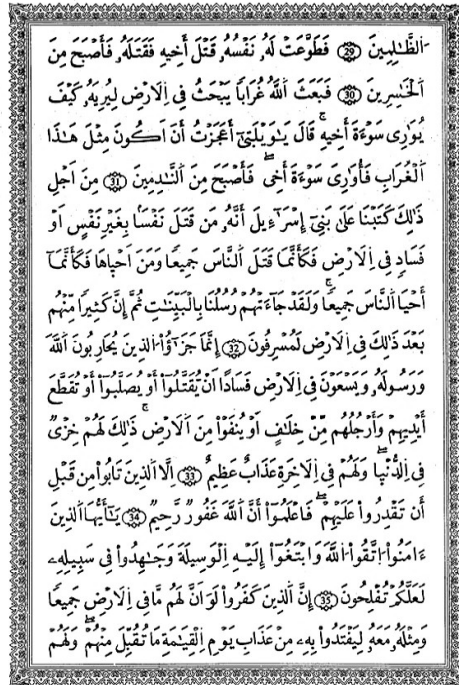 اَ۬لظَّٰلِمِينَۖ 29 فَطَوَّعَتْ لَهُۥ نَفْسُهُۥ قَتْلَ أَخِيهِ فَقَتَلَهُۥ فَأَصْبَحَ مِنَ
اَ۬لْخَٰسِرِينَۖ 30 فَبَعَثَ اَ۬للَّهُ غُرَاباٗ يَبْحَثُ فِے اِ۬لَارْضِ لِيُرِيَهُۥ كَيْفَ
يُوَٰرِے سَوْءَةَ أَخِيهِۖ قَالَ يَٰوَيْلَت۪يٰٓ أَعَجَزْتُ أَنَ اَكُونَ مِثْلَ هَٰذَا
اَ۬لْغُرَابِ فَأُوَٰرِيَ سَوْءَةَ أَخِےۖ فَأَصْبَحَ مِنَ اَ۬لنَّٰدِمِينَۖ 31 مِنَ اَجْلِ
ذَٰلِكَ كَتَبْنَا عَلَىٰ بَنِےٓ إِسْرَآءِيلَ أَنَّهُۥ مَن قَتَلَ نَفْساَۢ بِغَيْرِ نَفْسٍ اَوْ
فَسَادٖ فِے اِ۬لَارْضِ فَكَأَنَّمَا قَتَلَ اَ۬لنَّاسَ جَمِيعاٗ وَمَنَ اَحْيٜاهَا فَكَأَنَّمَآ
أَحْيَا اَ۬لنَّاسَ جَمِيعاٗۖ وَلَقَدْ جَآءَتْهُمْ رُسُلُنَا بِالْبَيِّنَٰتِ ثُمَّ إِنَّ كَثِيراٗ مِّنْهُم
بَعْدَ ذَٰلِكَ فِے اِ۬لَارْضِ لَمُسْرِفُونَۖ 32 إِنَّمَا جَزَٰٓؤُاْ اُ۬لذِينَ يُحَارِبُونَ اَ۬للَّهَ
وَرَسُولَهُۥ وَيَسْعَوْنَ فِے اِ۬لَارْضِ فَسَاداً اَنْ يُّقَتَّلُوٓاْ أَوْ يُصَلَّبُوٓاْ أَوْ تُقَطَّعَ
أَيْدِيهِمْ وَأَرْجُلُهُم مِّنْ خِلَٰفٍ اَوْ يُنفَوْاْ مِنَ اَ۬لَارْضِۖ ذَٰلِكَ لَهُمْ خِزْيٞ
فِے اِ۬لدُّنْيٜاۖ وَلَهُمْ فِے اِ۬لَاخِرَةِ عَذَابٌ عَظِيمٌ 33 اِلَّا اَ۬لذِينَ تَابُواْ مِن قَبْلِ
أَن تَقْدِرُواْ عَلَيْهِمْۖ فَاعْلَمُوٓاْ أَنَّ اَ۬للَّهَ غَفُورٞ رَّحِيمٞۖ 34 يَٰٓأَيُّهَا اَ۬لذِينَ
ءَامَنُواْ اُ۪تَّقُواْ اُ۬للَّهَ وَابْتَغُوٓاْ إِلَيْهِ اِ۬لْوَسِيلَةَ وَجَٰهِدُواْ فِے سَبِيلِهِۦ
لَعَلَّكُمْ تُفْلِحُونَۖ 35 إِنَّ اَ۬لذِينَ كَفَرُواْ لَوَ اَنَّ لَهُم مَّا فِے اِ۬لَارْضِ جَمِيعاٗ
وَمِثْلَهُۥ مَعَهُۥ لِيَفْتَدُواْ بِهِۦ مِنْ عَذَابِ يَوْمِ اِ۬لْقِيَٰمَةِ مَا تُقُبِّلَ مِنْهُمْۖ وَلَهُمْ